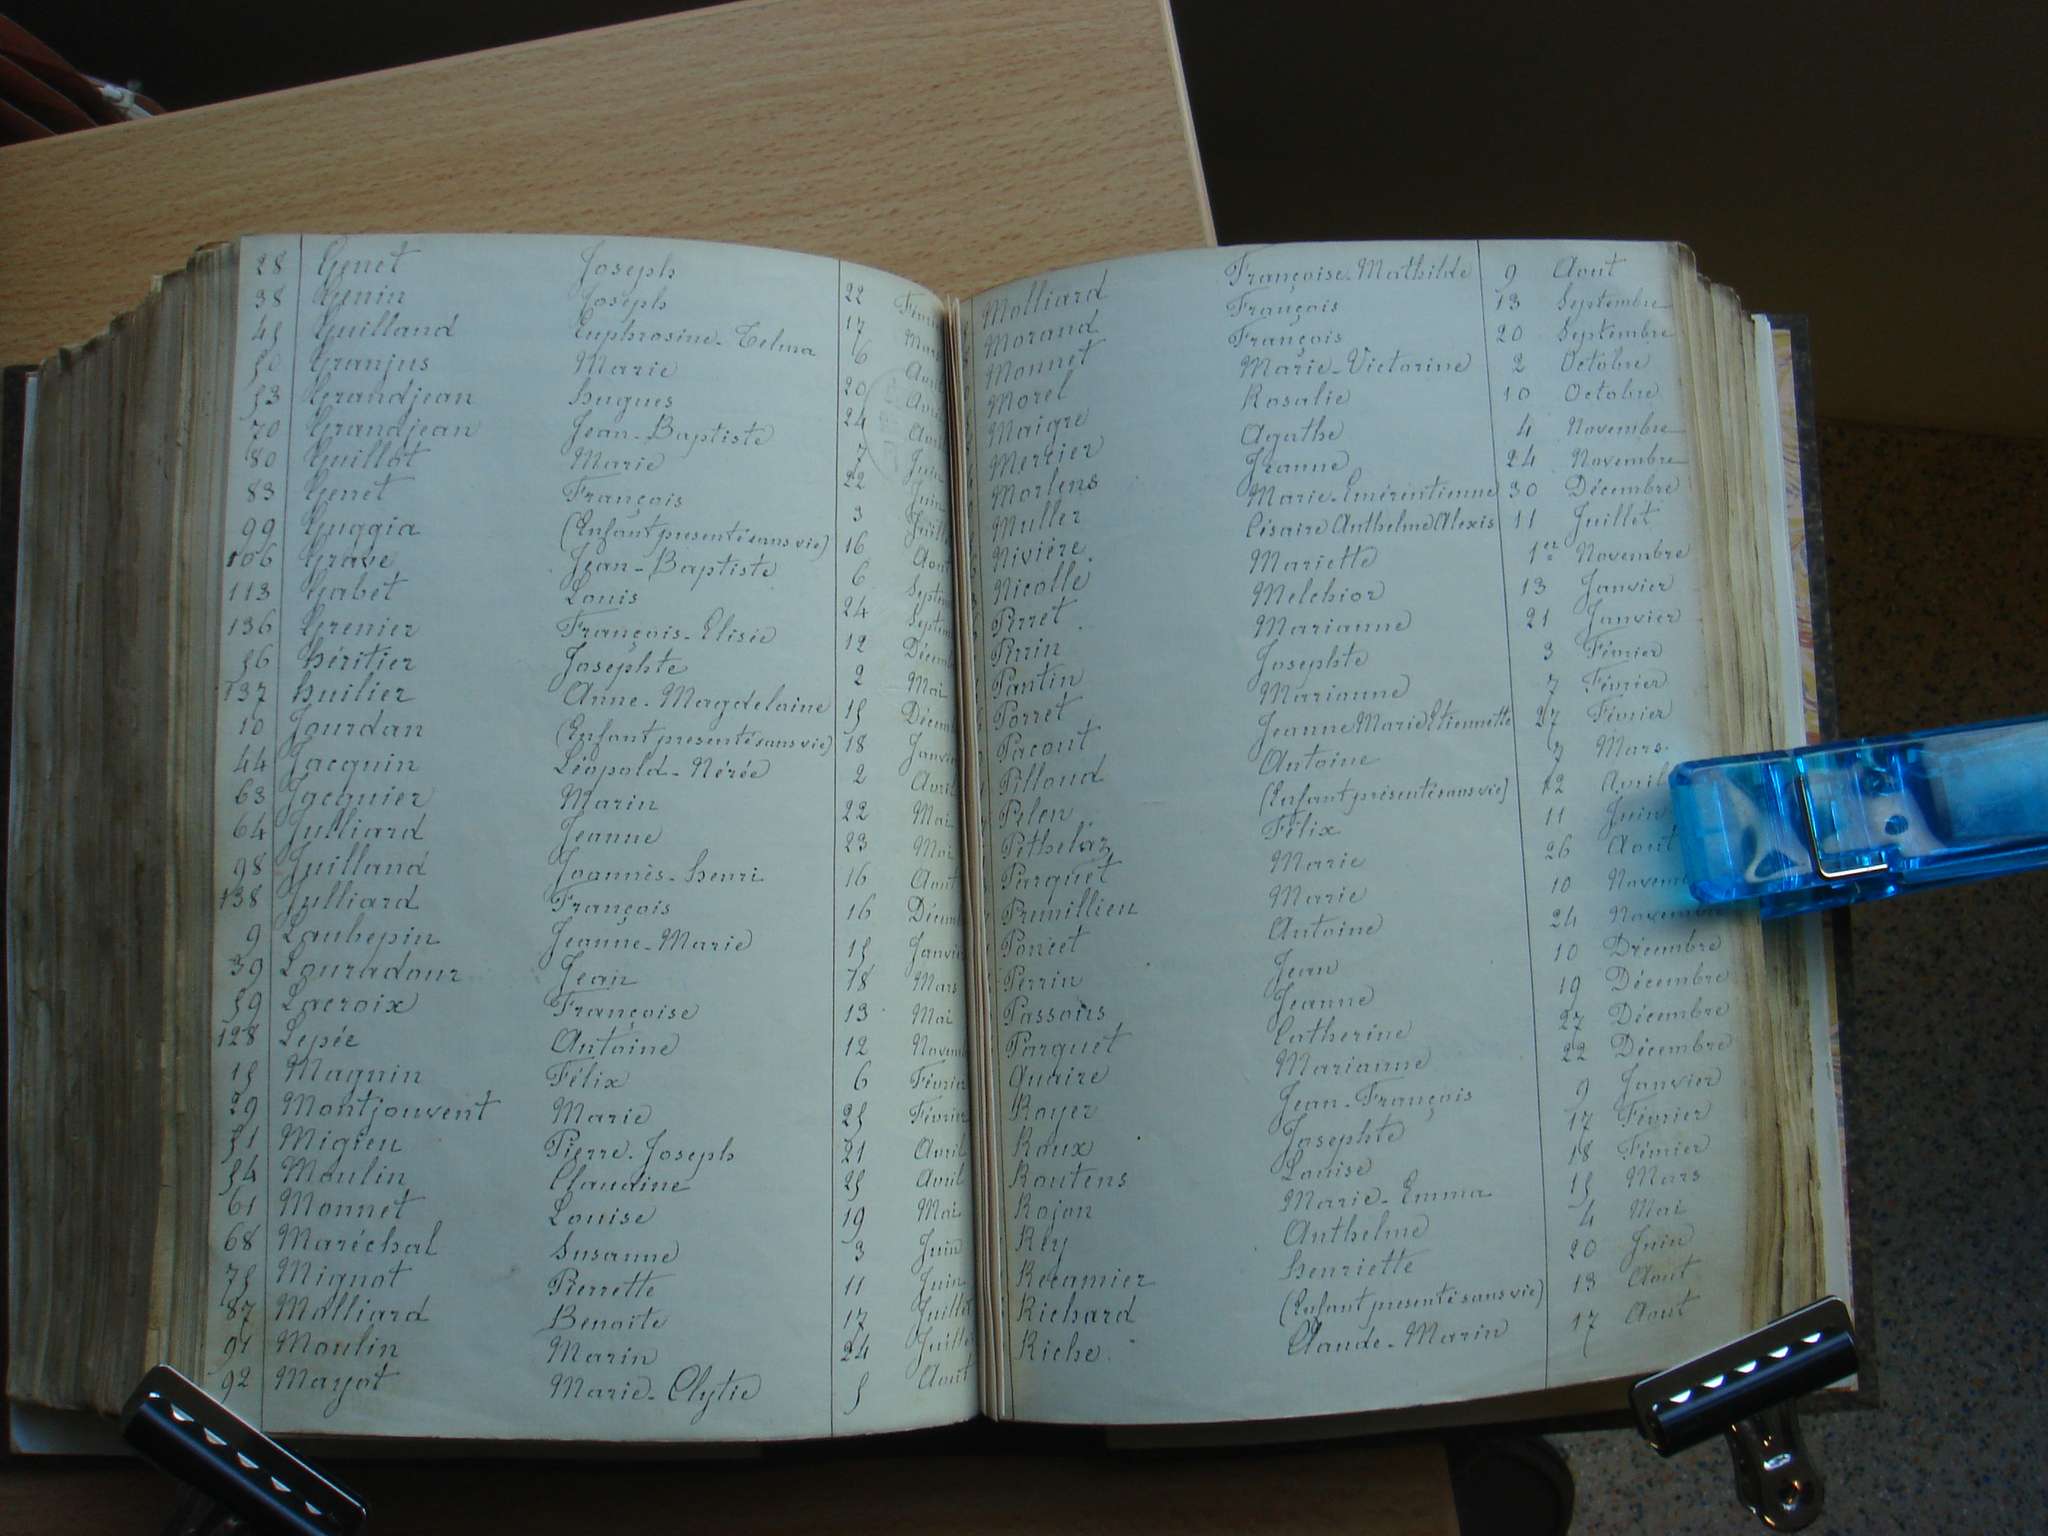 28 Genet Joseph 22 Février
38 Genin Joseph 17 Mars
45 Guilland Euphrosine-Telma 6 Avril
50 Granjus Marie 20 Avril
53 Grandjean Hugues 24 Avril
70 Grandjean Jean-Baptiste 7 Juin
80 Guillot Marie 22 Juin
83 Genet François 3 Juillet
99 Guggia (Enfant présenté sans vie) 16 Aout
106 Grave Jean-Baptiste 6 Septembre
113 Gabet Louis 24 Septembre
136 Grenier François-Elisée 12 Décembre
56 Héritier Josephte 2 Mai
137 Huilier Anne-Magdelaine 15 Décembre
10 Jourdan (Enfant présenté sans vie) 18 Janvier
44 Jacquin Léopold-Nérée 2 Avril
63 Jacquier Marin 22 Mai
64 Julliard Jeanne 23 Mai
98 Juilland Joannès-Henri 16 Aout
138 Julliard François 16 Décembre
9 Laubepin Jeanne-Marie 15 Janvier
39 Louradour Jean 18 Mars
59 Lacroix Françoise 13 Mai
128 Lepée Antoine 12 Novembre
15 Magnin Félix 6 Février
29 Montjouvent Marie 25 Février
51 Migieu Pierre-Joseph 21 Avril
54 Moulin Claudine 25 Avril
61 Monnet Louise 19 Mai
68 Maréchal Susanne 3 Juin
75 Mignot Pierrette 11 Juin
87 Molliard Benoite 17 Juillet
91 Moulin Marin 24 Juillet
92 Mayot Marie-Clytie 5 Aout
Molliard Françoise-Mathilde 9 Aout
Morand François 13 Septembre
Monnet François 20 Septembre
Morel Marie-Victorine 2 Octobre
Maigre Rosalie 10 Octobre
Mercier Agathe 4 Novembre
Morlens Jeanne 24 Novembre
Muller Marie-Emérentienne 30 Décembre
Nivière Césaire Anthelme Alexis 11 Juillet
Nicolle Mariette 1er Novembre
Perret Melchior 13 Janvier
Perrin Marianne 21 Janvier
Pantin Josephte 3 Février
Porret Marianne 7 Février
Pacout Jeanne Marie Etiennette 27 Février
Pilloud Antoine 7 Mars
Pelen (Enfant présenté sans vie) 12 Avril
Pethelaz Félix 11 Juin
Parquet Marie 26 Aout
Prunillien Marie 10 Novembre
Poncet Antoine 24 Novembre
Perrin Jean 10 Décembre
Passons Jeanne 19 Décembre
Parguet Catherine 27 Décembre
Quaire Marianne 22 Décembre
Royer Jean-François 9 Janvier
Roux Josephte 17 Février
Routens Louise 18 Février
Rojon Marie-Emma 15 Mars
Rey Anthelme 4 Mai
Recamier Henriette 20 Juin
Richard (Enfant présenté sans vie) 13 Aout
Riche Claude-Marin 17 Aout